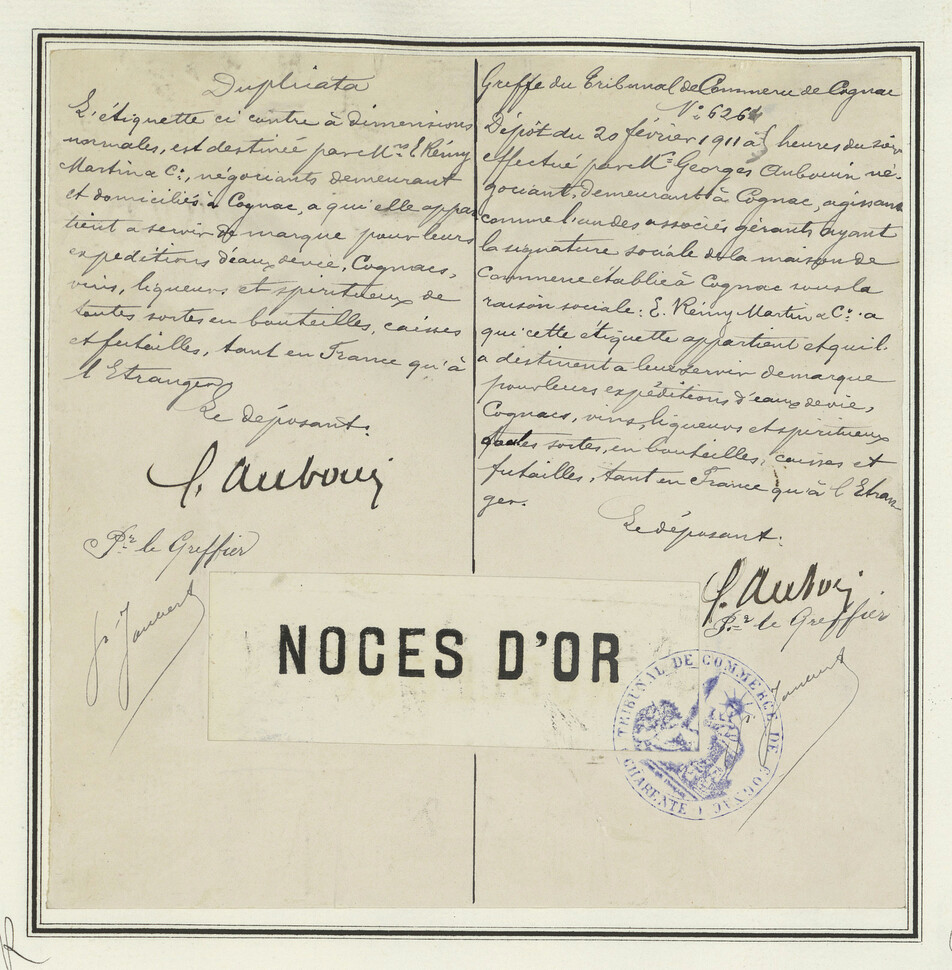 Duplicata
L'étiquette ci contre à dimensions
normales, est destinée par Mrs E. Rémy
Martin & Co, négociants demeurant
et domiciliés à Cognac, a qui elle appar
tient a servir de marque pour leurs
expéditions d'eaux de vie, Cognacs,
vins, liqueurs et spiritueux de
toutes sortes en bouteilles, caisses
et futailles, tant en France qu'à
l'Etranger
Le déposant:
G. Aubouin
Pr le Greffier
Greffe du Tribunal de Commerce de Cognac
No 6261
Dépôt du 20 février 1911 à 5 heures du soir
effectué par Mr Georges Aubouin né-
gociant, demeurant à Cognac, agissant
comme l'un des associés gérants ayant
la signature sociale de la maison de
Commerce établie à Cognac sous la
raison sociale: E. Rémy Martin & Co. a
qui cette étiquette appartient et qu'il
a destinent a leur servir de marque
pour leurs expéditions d'eaux de vie,
Cognacs, vins, liqueurs et spiritueux
toutes sortes, en bouteilles, caisses et
futailles, tant en France qu'à l'Etran
ger.
Le déposant:
G. Aubouin
Pr le Greffier
NOCES D'OR
TRIBUNAL DE COMMERCE DE COGNAC
CHARENTE